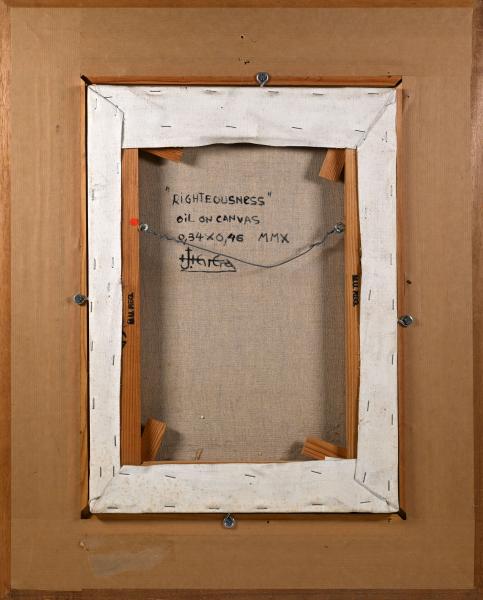 "RIGHTEOUSNESS"
OIL ON CANVAS
0,34X0,46 MMX